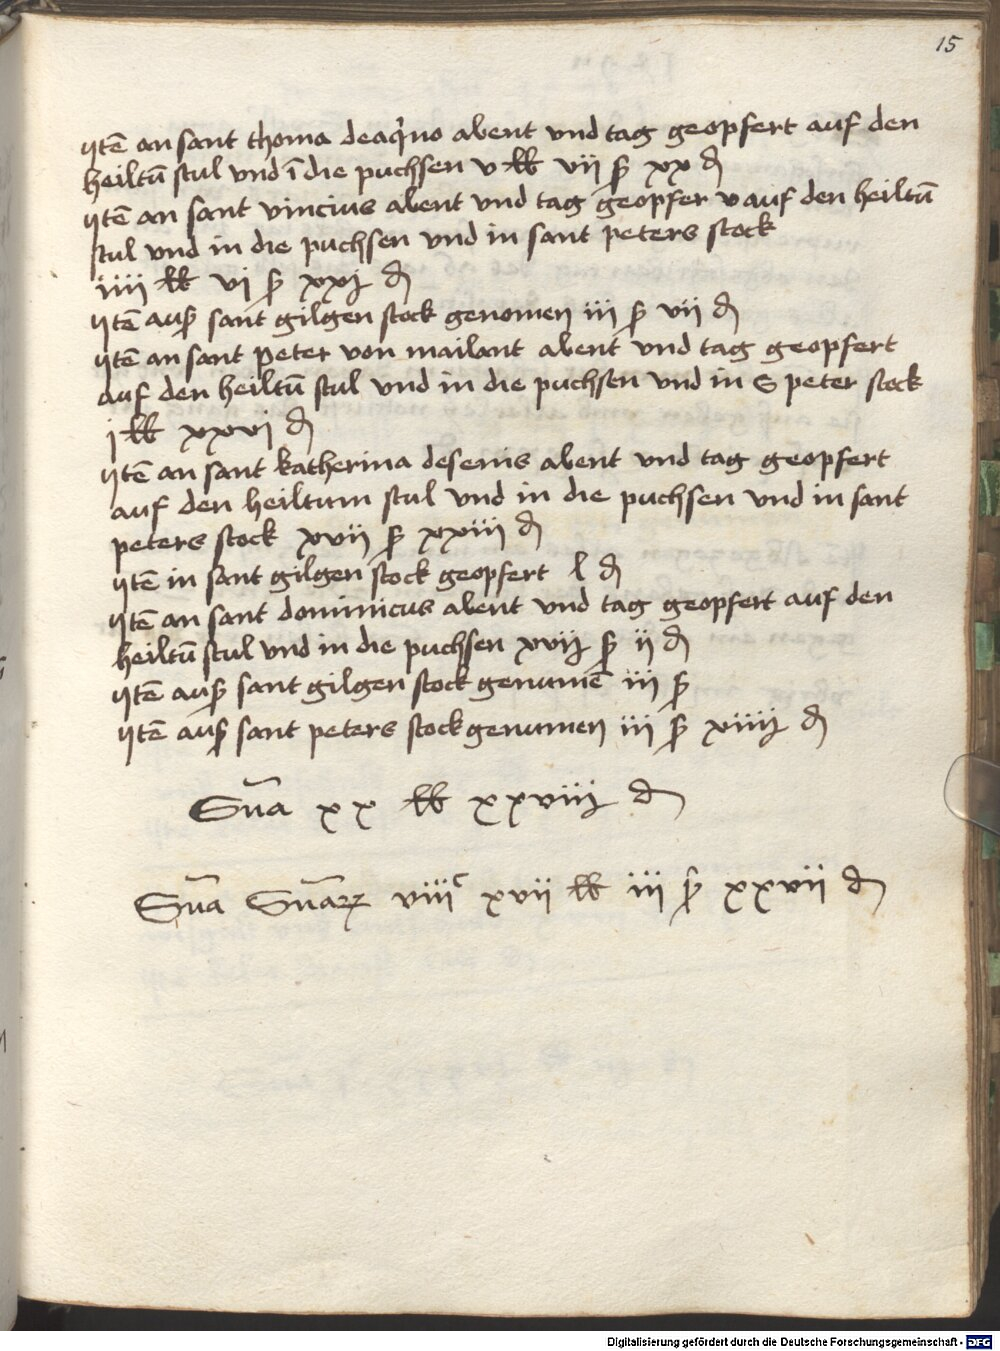 15
Jtē an sant thoma deaqͥno abent vnd tag geopfert auf den
heiltū stul vnd ī die puchsen v lb vij ß xx ₰
Jtē an sant vincius abent vnd tag geopfer v auf den heiltū
stul vnd in die puchsen vnd in sant peters stock
iiij lb vj ß xxj ₰
Jtē auß sant gilgen stock genomen iij ß vij ₰
Jtē an sant peter von mailant abent vnd tag geopfert
auf den heiltū stul vnd in die puchsen vnd in S peter stock
j lb xxvj ₰
Jtē an sant katherina desenis abent vnd tag geopfert
auf den heiltum stul vnd in die puchsen vnd in sant
peters stock xvij ß xxiij ₰
Jtē in sant gilgen stock geopfert l ₰
Jtē an sant dominicus abent vnd tag geopfert auf den
heiltū stul vnd in die puchsen xvij ß ij ₰
Jtē auß sant gilgen stock genumē iij ß
Jtē auß sant peters stock genumen iij ß xiiij ₰
Sūa xx lb xxviij ₰
Sūa Sūaꝝ viiiᶜ xvij lb iij ß xxvij ₰
Digitalisierung gefördert durch die Deutsche Forschungsgemeinschaft - DFG